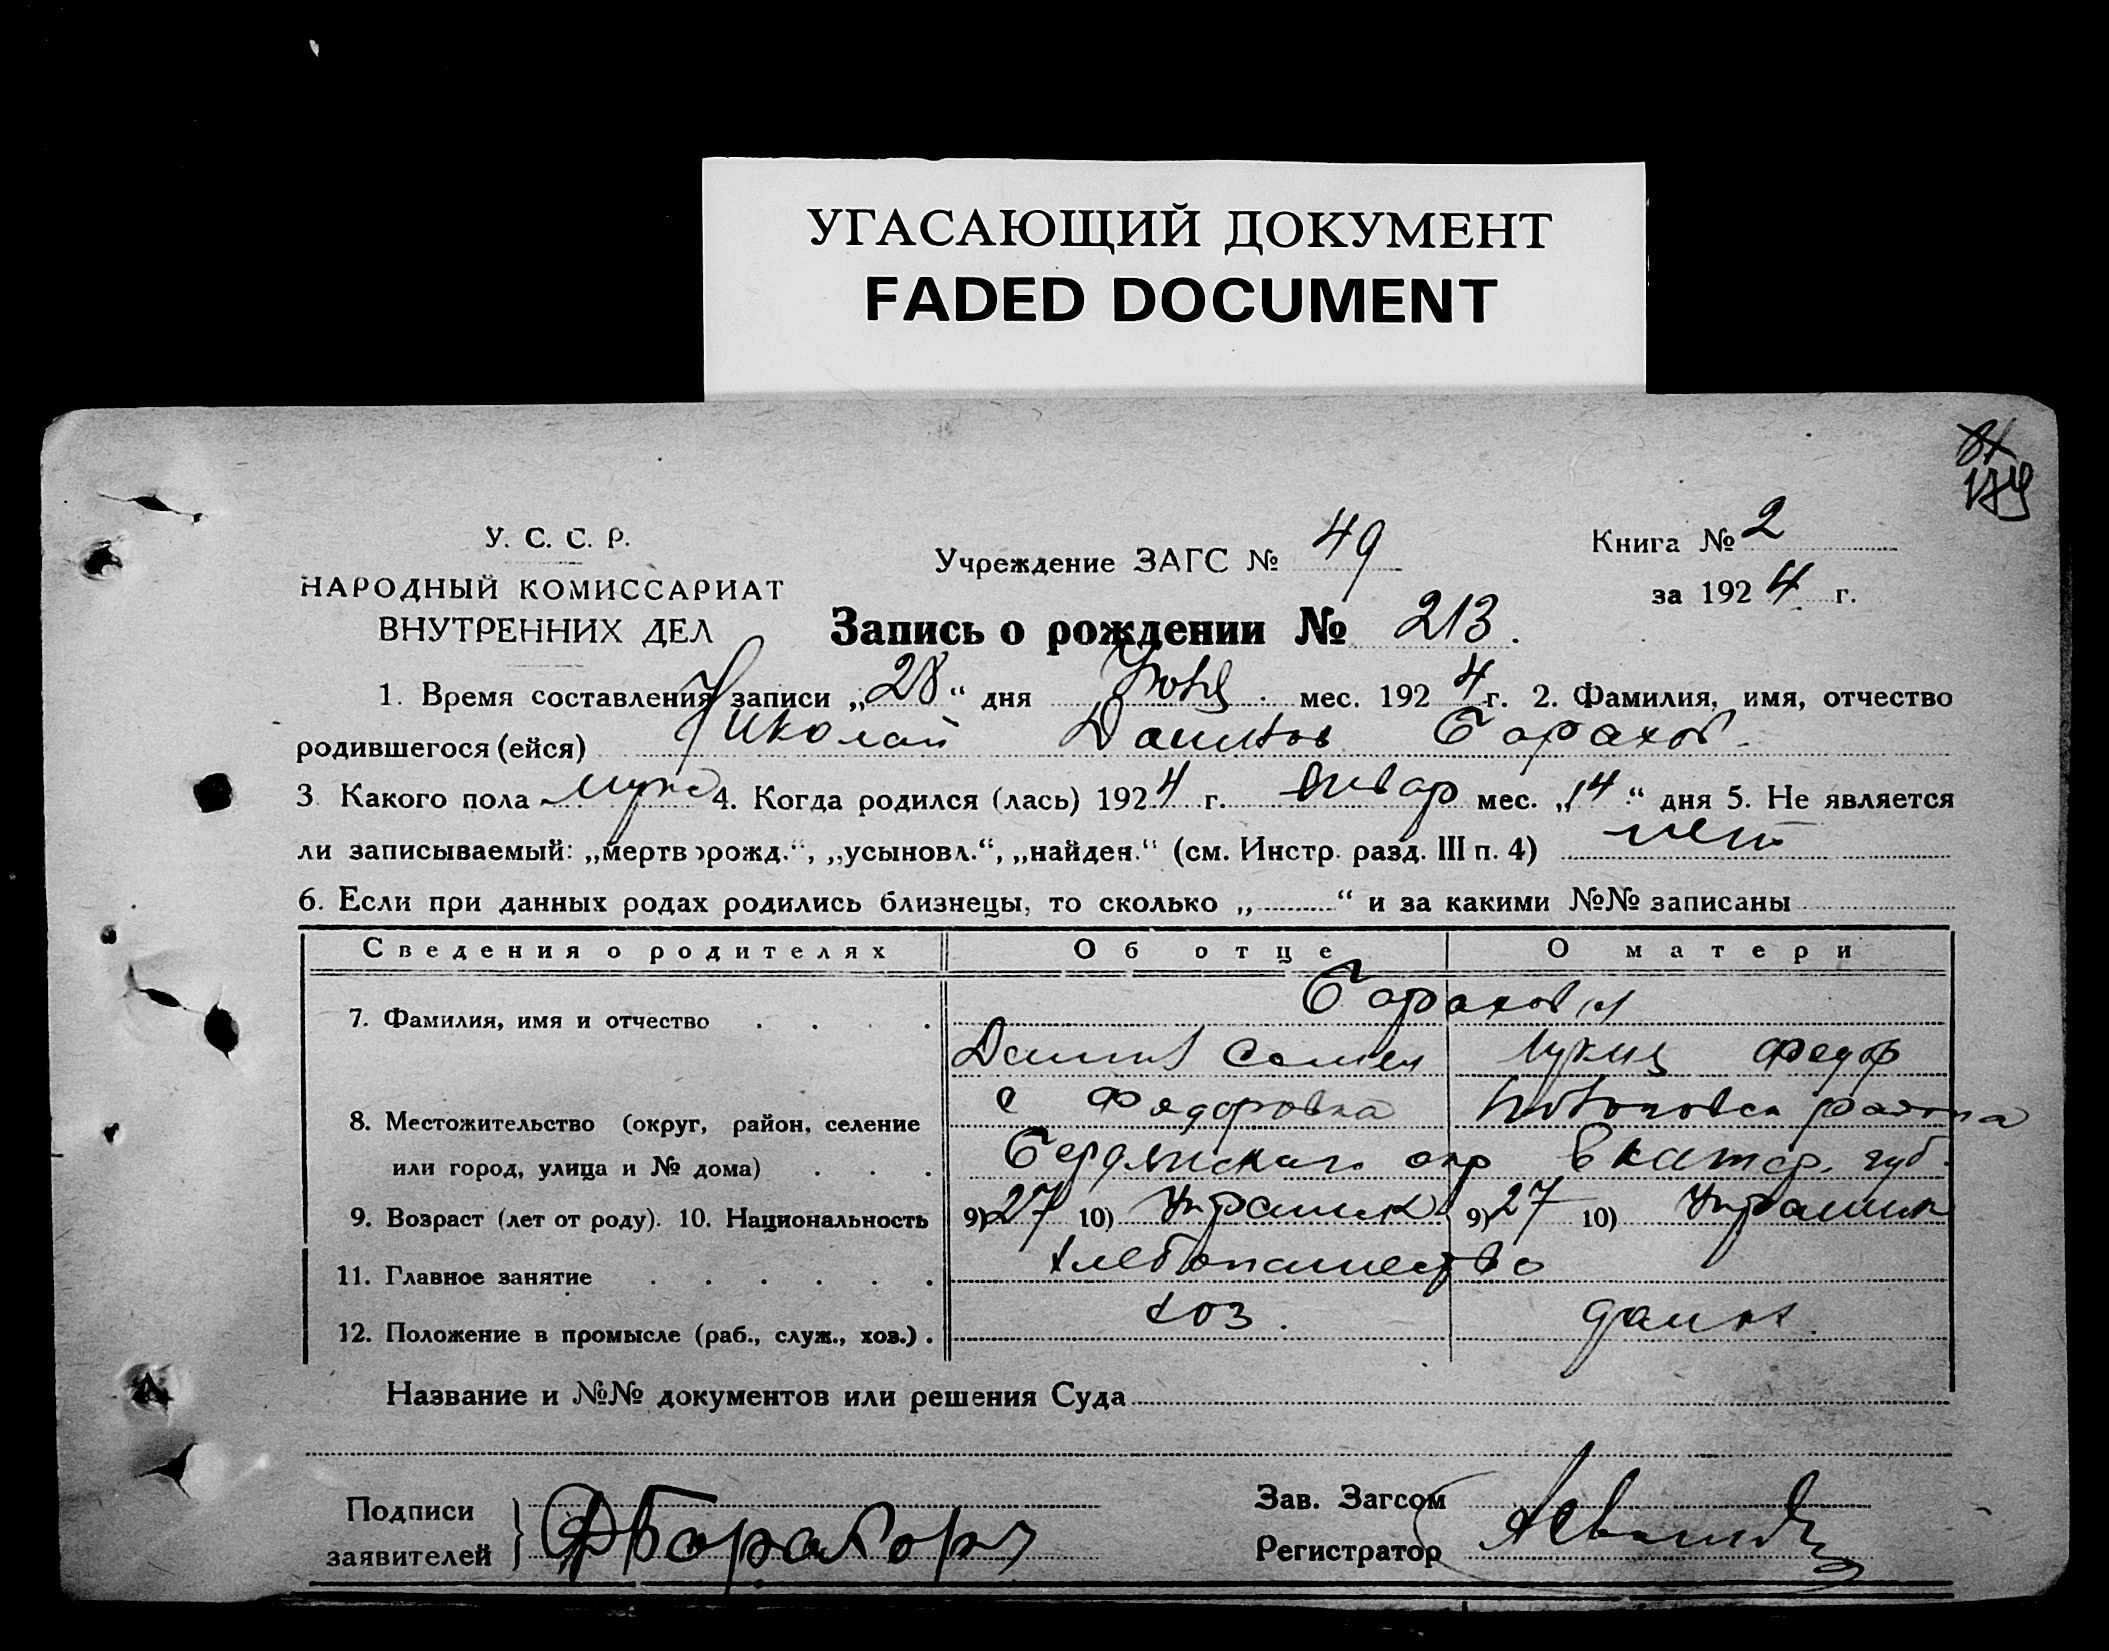 УГАСАЮЩИЙ ДОКУМЕНТ
FADED DOCUMENT
174
У. С. С. Р.
НАРОДНЫЙ КОМИССАРИАТ
ВНУТРЕННИХ ДЕЛ
Учреждение ЗАГС № 49
Книга № 2
за 1924 г.
Запись о рождении № 213.
1. Время составления записи „28“ дня мес. 1924 г. 2. Фамилия, имя, отчество
родившегося (ейся) Николай Данилов Барахов
3 Какого пола муж 4. Когда родился (лась) 1924 г. Январ мес. „14“ дня 5. Не является
ли записываемый: „мертворожд.“, „усыновл.“, „найден.“ (см. Инстр. разд. III п. 4) нет
6. Если при данных родах родились близнецы, то сколько „ “ и за какими №№ записаны
Сведения о родителях Об отце О матери
7. Фамилия, имя и отчество Бараховы
Данил Семен Лукия Федор
8. Местожительство (округ, район, селение с Федоровка района
или город, улица и № дома) Бердянскаго окр Екатер. губ.
9. Возраст (лет от роду). 10. Национальность 9) 27 10) Украинск 9) 27 10) Украинк
11. Главное занятие хлебопашество
12. Положение в промысле (раб., служ., хоз.) хоз. домох.
Название и №№ документов или решения Суда
Подписи
заявителей
Зав. Загсом
Регистратор